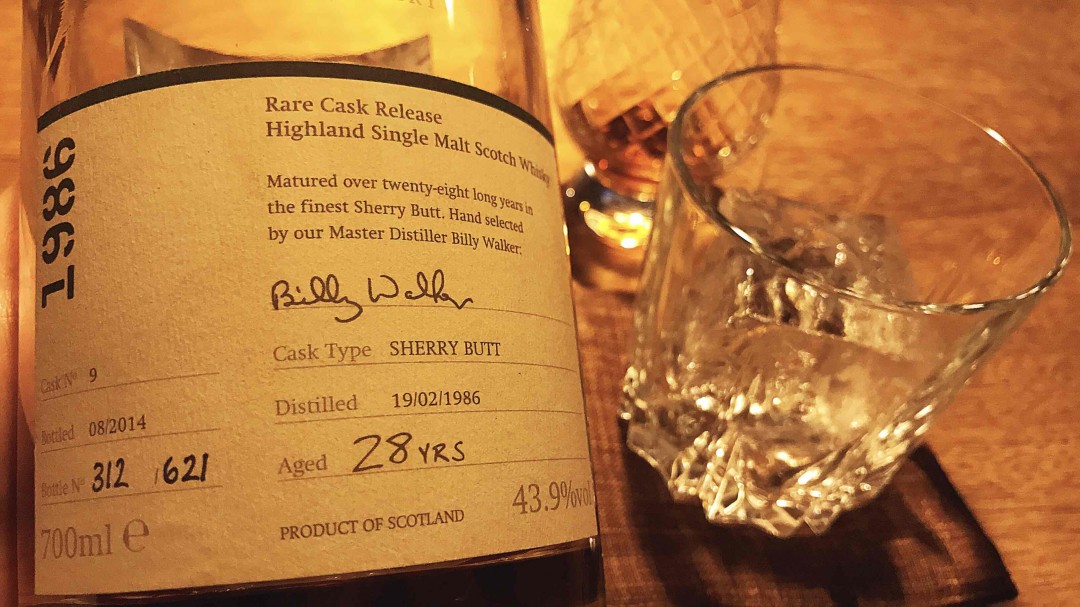 1986
Rare Cask Release
Highland Single Malt Scotch Whisky
Matured over twenty-eight long years in
the finest Sherry Butt. Hand selected
by our Master Distiller Billy Walker:
Billy Walker
Cask Type SHERRY BUTT
Cask Nº 9
Distilled 19/02/1986
Bottled 08/2014
Aged 28 YRS
Bottle Nº 312 / 621
43.9%vol
PRODUCT OF SCOTLAND
700ml e